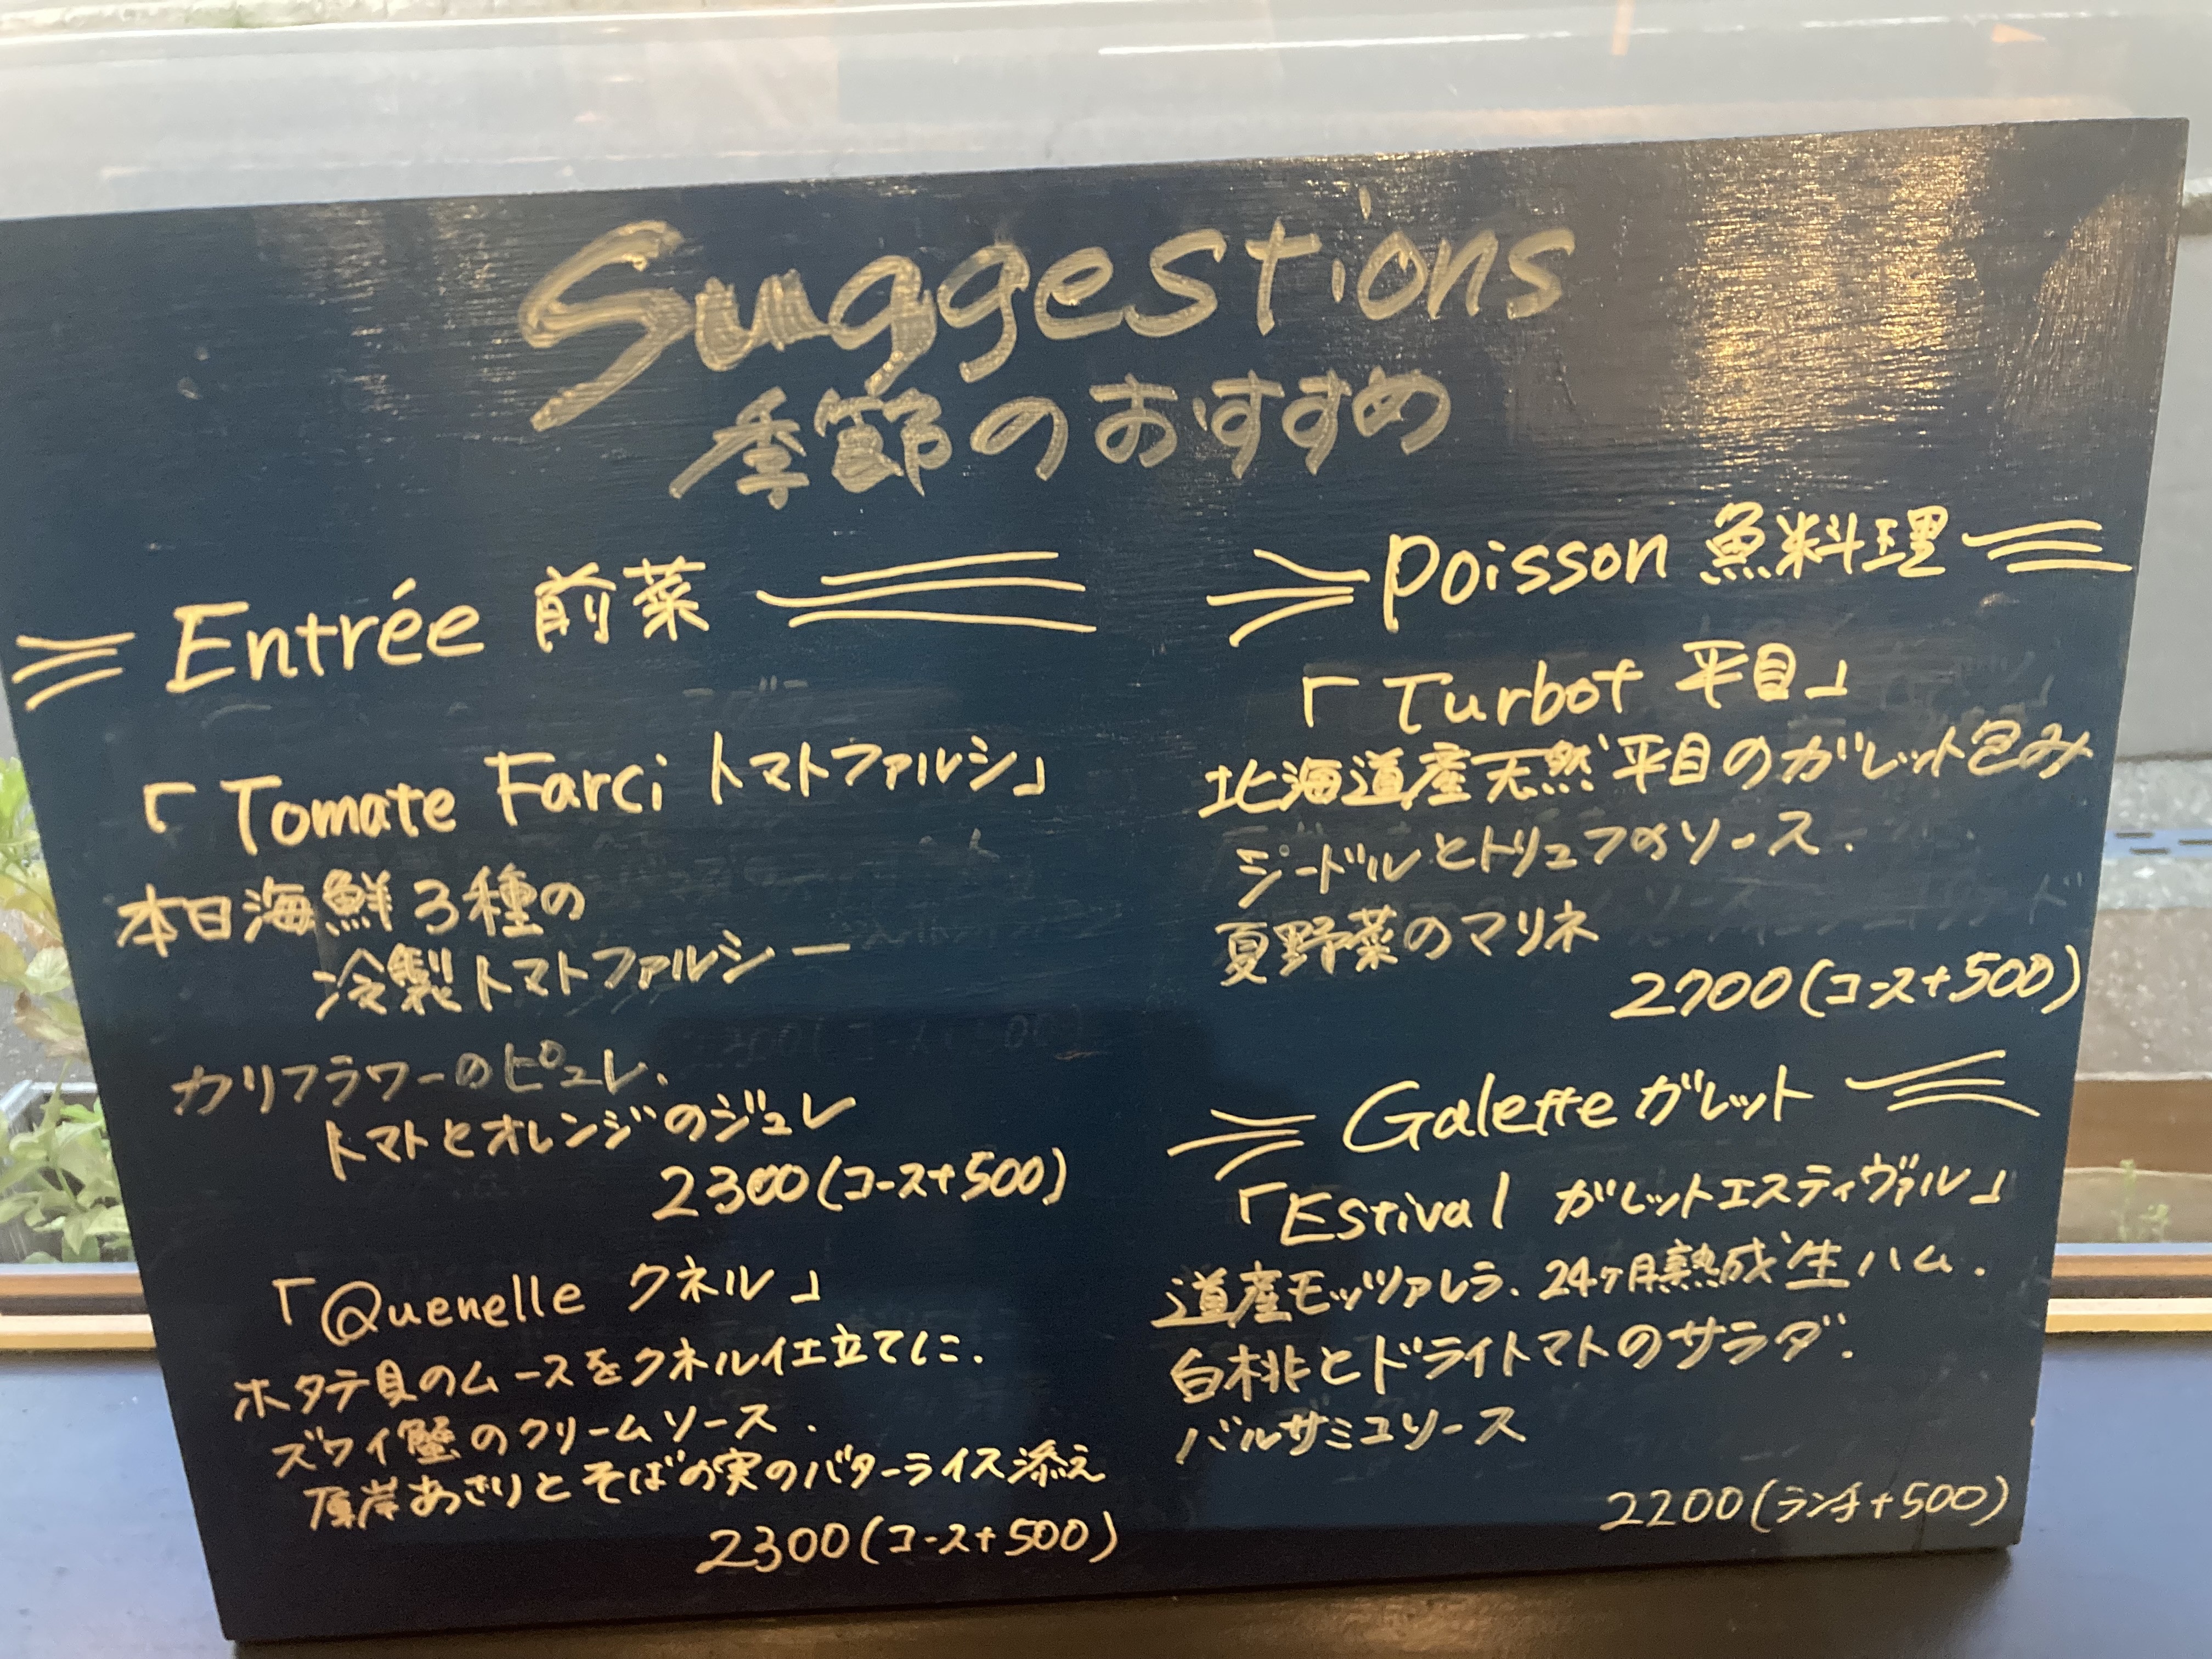 Suggestions
季節のおすすめ
Entrée 前菜
「Tomate Farci トマトファルシ」
本日海鮮3種の
冷製トマトファルシー
カリフラワーのピュレ、
トマトとオレンジのジュレ
2300(コース+500)
「Quenelle クネル」
ホタテ貝のムースをクネル仕立てに、
ズワイ蟹のクリームソース、
厚岸あさりとそばの実のバターライス添え
2300(コース+500)
Poisson 魚料理
「Turbot 平目」
北海道産天然平目のガレット包み
シードルとトリュフのソース、
夏野菜のマリネ
2700(コース+500)
Galette ガレット
「Estival ガレットエスティヴァル」
道産モッツァレラ、24ヶ月熟成生ハム、
白桃とドライトマトのサラダ、
バルサミコソース
2200(ランチ+500)